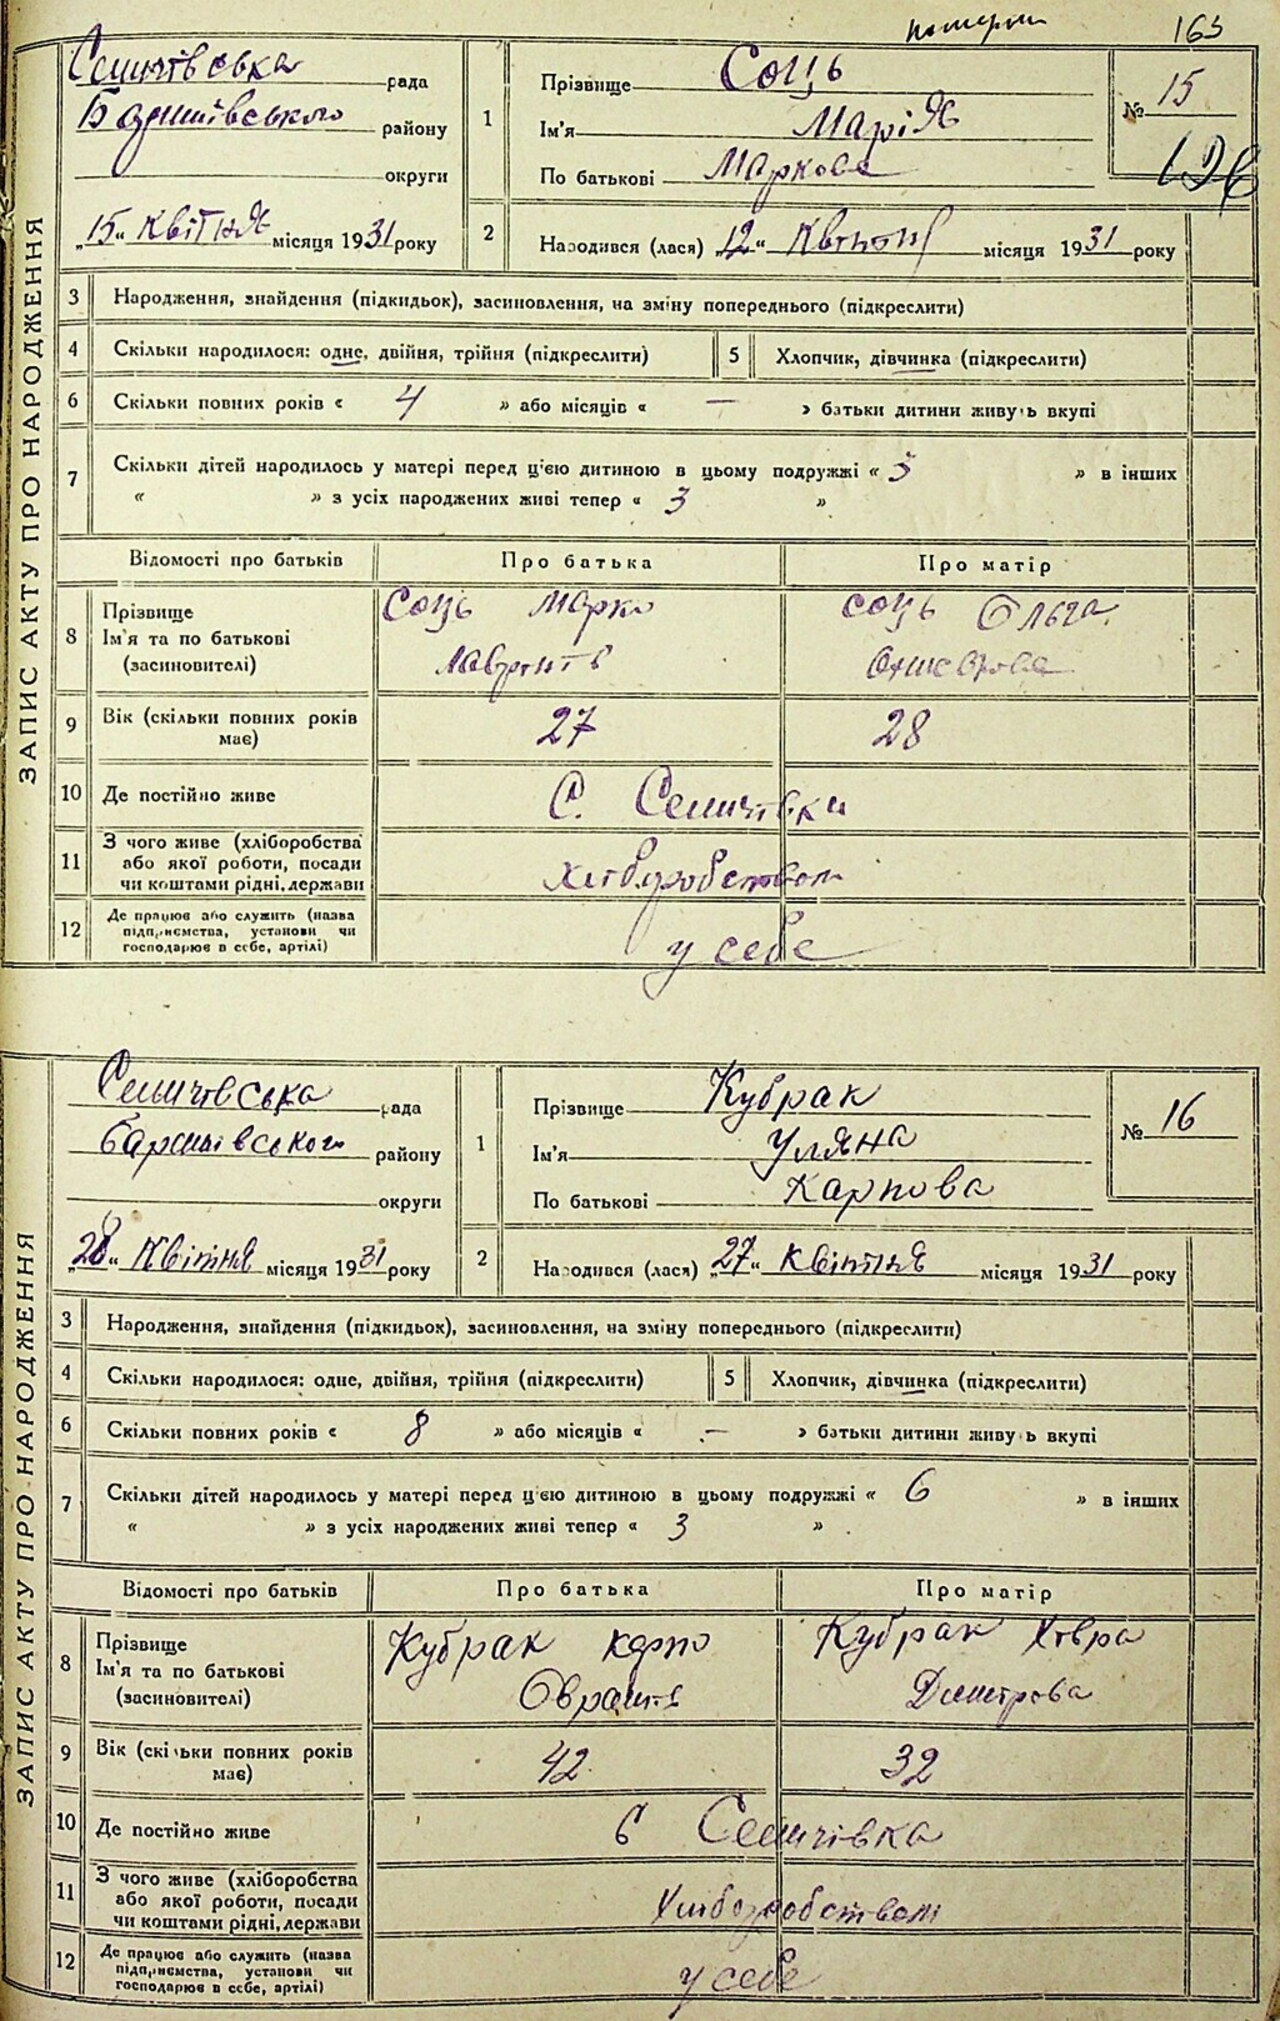 померла 163
ЗАПИС АКТУ ПРО НАРОДЖЕННЯ
Семичівська рада
района району
округи
„15“ Квітня місяця 1931 року
1
Прізвище Соць
Ім'я Марія
По батькові Маркова
№ 15
2 Народився (лася) „12“ Квітня місяця 1931 року
3 Народження, знайдення (підкидьок), засиновлення, на зміну попереднього (підкреслити)
4 Скільки народилося: одне, двійня, трійня (підкреслити) 5 Хлопчик, дівчинка (підкреслити)
6 Скільки повних років « 4 » або місяців « — » батьки дитини живуть вкупі
7 Скільки дітей народилось у матері перед цією дитиною в цьому подружжі « 3 » в інших
« » з усіх народжених живі тепер « 3 »
Відомості про батьків Про батька Про матір
8 Прізвище Ім'я та по батькові (засиновителі)
Соць Марко Соць Ольга
9 Вік (скільки повних років має) 27 28
10 Де постійно живе С. Семичівки
11 З чого живе (хліборобства або якої роботи, посади чи коштами рідні, держави Хліборобством
12 Де працює або служить (назва підприємства, установи чи господарює в себе, артілі) у себе
ЗАПИС АКТУ ПРО НАРОДЖЕННЯ
Семичівська рада
району
округи
„28“ Квітня місяця 1931 року
1
Прізвище Кубрак
Ім'я Уляна
По батькові Карпова
№ 16
2 Народився (лася) „27“ Квітня місяця 1931 року
3 Народження, знайдення (підкидьох), засиновлення, на зміну попереднього (підкреслити)
4 Скільки народилося: одне, двійня, трійня (підкреслити) 5 Хлопчик, дівчинка (підкреслити)
6 Скільки повних років « 8 » або місяців « — » батьки дитини живуть вкупі
7 Скільки дітей народилось у матері перед цією дитиною в цьому подружжі « 6 » в інших
« » з усіх народжених живі тепер « 3 »
Відомості про батьків Про батька Про матір
8 Прізвище Ім'я та по батькові (засиновителі)
Кубрак Карпо Кубрак Хівра
Дмитрова
9 Вік (скільки повних років має) 42 32
10 Де постійно живе с Семичівка
11 З чого живе (хліборобства або якої роботи, посади чи коштами рідні, держави Хліборобством
12 Де працює або служить (назва підприємства, установи чи господарює в себе, артілі) у себе